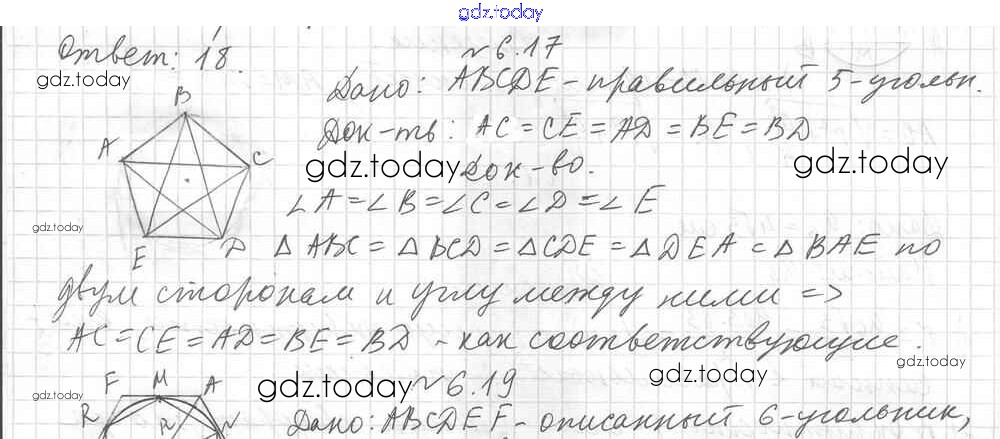 gdz.today
Ответ: 18.
№ 6.17
gdz.today
Дано: ABCDE - правильный 5-угольн.
B
A
C
E
D
Док-ть: AC = CE = AD = BE = BD
gdz.today
Док-во.
gdz.today
∠A = ∠B = ∠C = ∠D = ∠E
gdz.today
△ ABC = △ BCD = △ CDE = △ DEA = △ BAE по
двум сторонам и углу между ними =>
AC = CE = AD = BE = BD - как соответствующие.
gdz.today
gdz.today
gdz.today
№ 6.19
gdz.today
F M A
R N
Дано: ABCDEF - описанный 6-угольник,